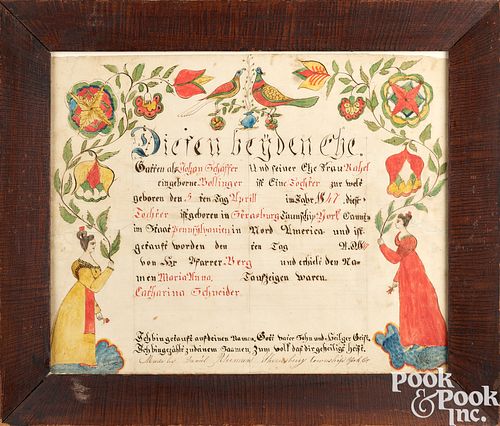 Diesen beyden Ehe.
Gatten als Johan Schaffer Und seiner Ehe frau Rahel
eingeborne Bollinger ist Eine Tochter zur welt
geboren den 5 ten Tag Aprill im Jahr 1847, diese
Tochter ist geboren in Strasburg Taunschip York Caunt
im Staat Pennsylvanien in Nord America und ist
getauft worden den ten Tag A.D.
von Hr Pfarrer Berg und erhielt den Na-
men Maria Anna. Taufzeigen waren.
Catharina Schneider.
Ich bin getauft auf deinen Namen, Gott vater Sohn und Heilger Geist,
Ich bin gezählt zu deinem Saamen, Zum Volk das dir geheiligt heist.
Daniel Peterman Shrewsbury township York Co
POOK
& POOK
INC.